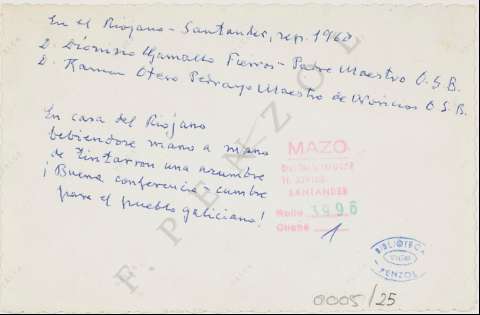 En el Riojano - Santander, sep. 1960
D. Dionisio Gamallo Fierros - Padre Maestro O.S.B.
D. Ramon Otero Pedrayo Maestro de Novicios O.S.B.
En casa del Riojano
bebiendose mano a mano
de tintarron una azumbre
¡Buena conferencia - cumbre
para el pueblo galiciano!
MAZO
SANTANDER
Rollo 3996
Cliché 1
BIBLIOTECA
VIGO
PENZOL
0005/25
F. PENZOL